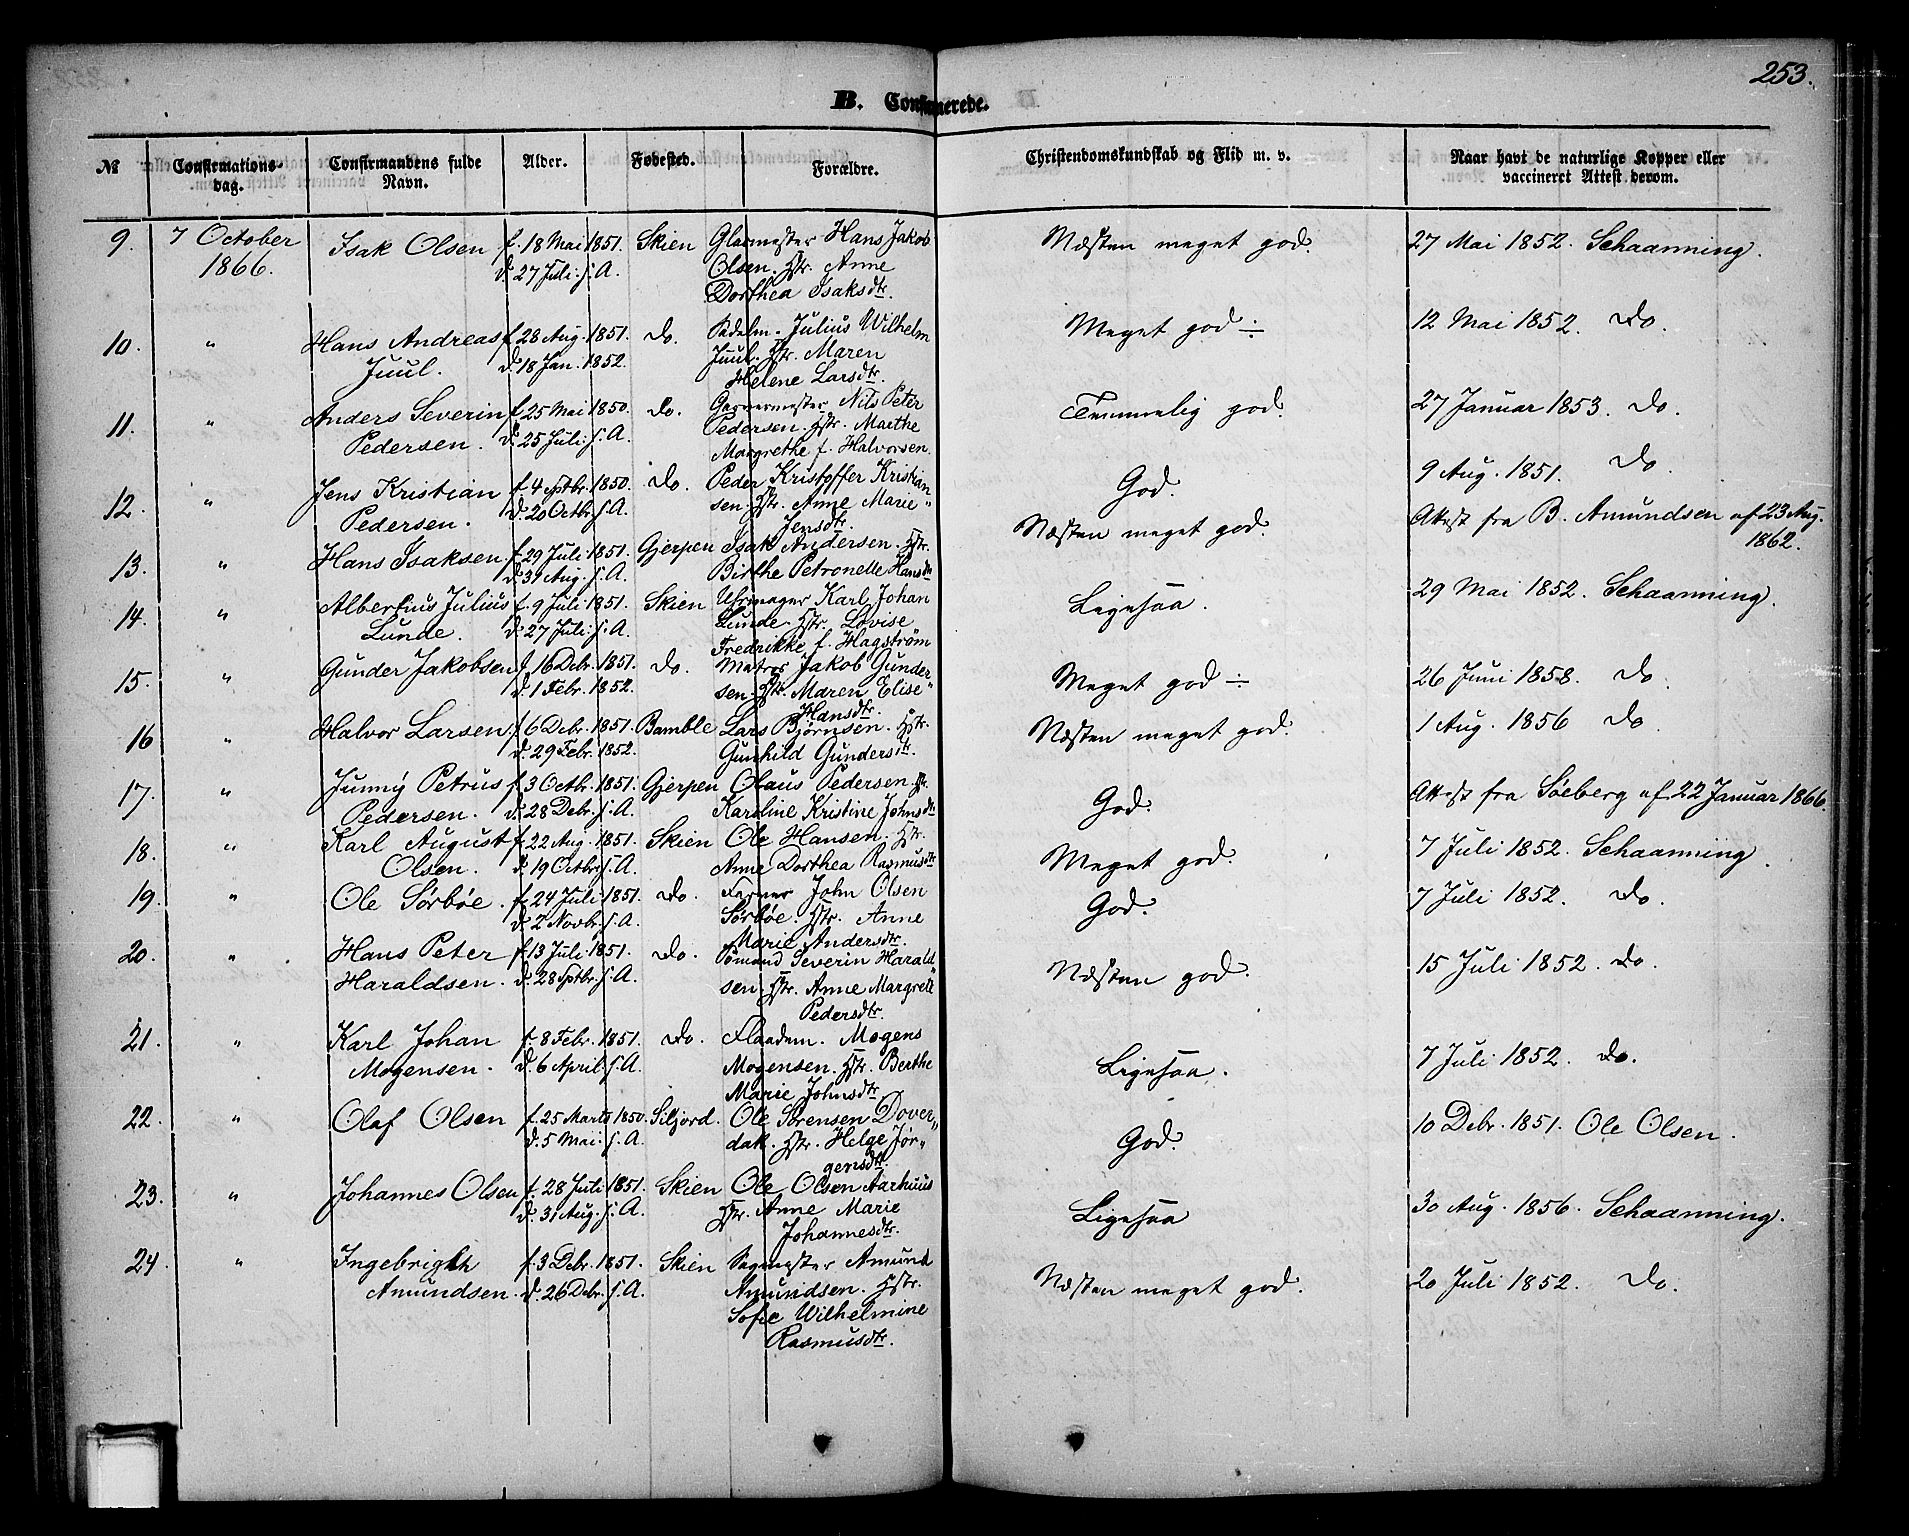 253.
B. Confirmerede.
№ Confirmations-dag. Confirmandens fulde Navn. Alder. Fødested. Forældre. Christendomskundskab og Flid m. v. Naar havt de naturlige Kopper eller vaccineret Attest derom.
9. 7 October Isak Olsen f. 18 Mai 1851. Skien Glarmester Hans Jakob Næsten meget god. 27 Mai 1852. Schaanning.
1866. d. 27 Juli s. A. Olsen. Hstr. Anne
Dorthea Isaksdtr.
10. " Hans Andreas f. 28 Aug. 1851. Do. Julius Wilhelm Meget god ÷ 12 Mai 1852. Do.
Juul. d. 18 Jan. 1852. Juul. Hstr. Maren
Helene Larsdtr.
11. " Anders Severin f. 25 Mai 1850. Do. Garvermester Nils Peter Temmelig god. 27 Januar 1853. Do.
Pedersen. d. 25 Juli s. A. Pedersen. Hstr. Marthe
Margrethe f. Halvorsen.
12. " Jens Kristian f. 4 Sptbr. 1850. Do. Peder Kristoffer Kristian God. 9 Aug. 1851. Do.
Pedersen. d. 20 Octbr. s. A. sen. Hstr. Anne Marie "
Jensdtr.
13. " Hans Isaksen. f. 29 Juli 1851. Gjerpen Isak Andersen. Hstr. Næsten meget god. Attest fra B. Amundsen af 23 Aug.
d. 31 Aug. s. A. Birthe Petronelle Hansdtr 1862.
14. " Albertius Julius f. 9 Juli 1851. Skien Uhrmager Karl Johan Ligesaa. 29 Mai 1852. Schaanning.
Lunde. d. 27 Juli s. A. Lunde. Hstr. Lovise
Fredrikke f. Hagström
15. " Gunder Jakobsen f. 16 Debr. 1851. Do. Matros Jakob Gunder Meget god ÷ 26 Juni 1858. Do.
d. 1 Febr. 1852. sen. Hstr. Maren Elise "
Hansdtr.
16 " Halvor Larsen. f. 6 Debr. 1851. Bamble Lars Bjørnsen. Hstr. Næsten meget god. 1 Aug. 1856 Do
d. 29 Febr. 1852. Gunhild Gundersdtr.
17. " Junny Petrus f. 3 Octbr. 1851. Gjerpen Olaus Pedersen. Hstr. God. Attest fra Søeberg af 22 Januar 1866.
Pedersen. d. 28 Debr. s. A. Karoline Kristine Johnsdtr
18. " Karl August f. 22 Aug. 1851. Skien Ole Hansen. Hstr. Meget god. 7 Juli 1852. Schaanning.
Olsen. d. 19 Octbr. s. A. Anne Dorthea Rasmusdtr
19. " Ole Sørbøe. f. 24 Juli 1851. Do. Farver John Olsen God. 7 Juli 1852. Do.
d. 2 Novbr. s. A. Sørbøe. Hstr. Anne
Marie Andersdtr.
20. " Hans Peter f. 13 Juli 1851. Do. Sømand Severin Harald Næsten god. 15 Juli 1852. Do.
Haraldsen. d. 28 Sptbr. s. A. sen. Hstr. Anne Margrete
Pedersdtr.
21. " Karl Johan f. 8 Febr. 1851. Do. Flaadem. Mogens Ligesaa. 7 Juli 1852. Do.
Mogensen. d. 6 April. s. A. Mogensen. Hstr. Berthe
Marie Johnsdtr
22. " Olaf Olsen f. 25 Marts 1850. Siljord. Ole Sørensen Dover" God. 10 Debr. 1851. Ole Olsen.
d. 5 Mai. s. A. dak. Hstr. Helge Jør"
gensdtr.
23. " Johannes Olsen f. 28 Juli 1851. Skien Ole Olsen Aarhuus Ligesaa 30 Aug. 1856. Schaanning.
d. 31 Aug. s. A. Hstr. Anne Marie
Johannesdtr.
24. " Ingebrigth f. 3 Debr. 1851. Skien Sagmester Amund Næsten meget god. 20 Juli 1852. Do.
Amundsen. d. 26 Debr. s. A. Amundsen. Hstr.
Sofie Wilhelmine
Rasmusdtr.